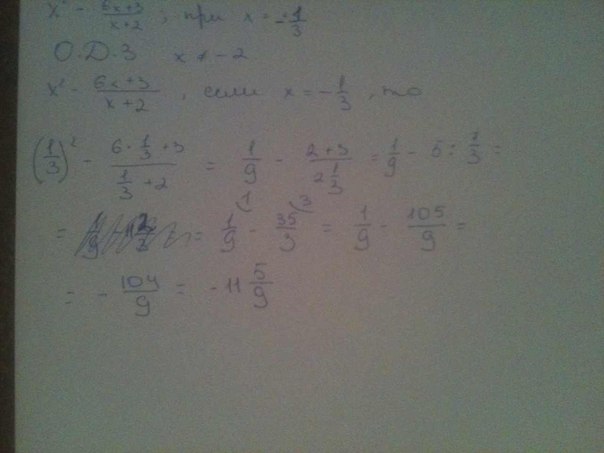 x² - (6x+3)/(x+2) ; при x = -1/3
О.Д.З x ≠ -2
x² - (6x+3)/(x+2) , если x = -1/3 , то
(1/3)² - (6·1/3+3)/(1/3+2) = 1/9 - (2+3)/(2 1/3) = 1/9 - 5 : 7/3 =
= = 1/9 - 35/3 = 1/9 - 105/9 =
= - 104/9 = -11 5/9